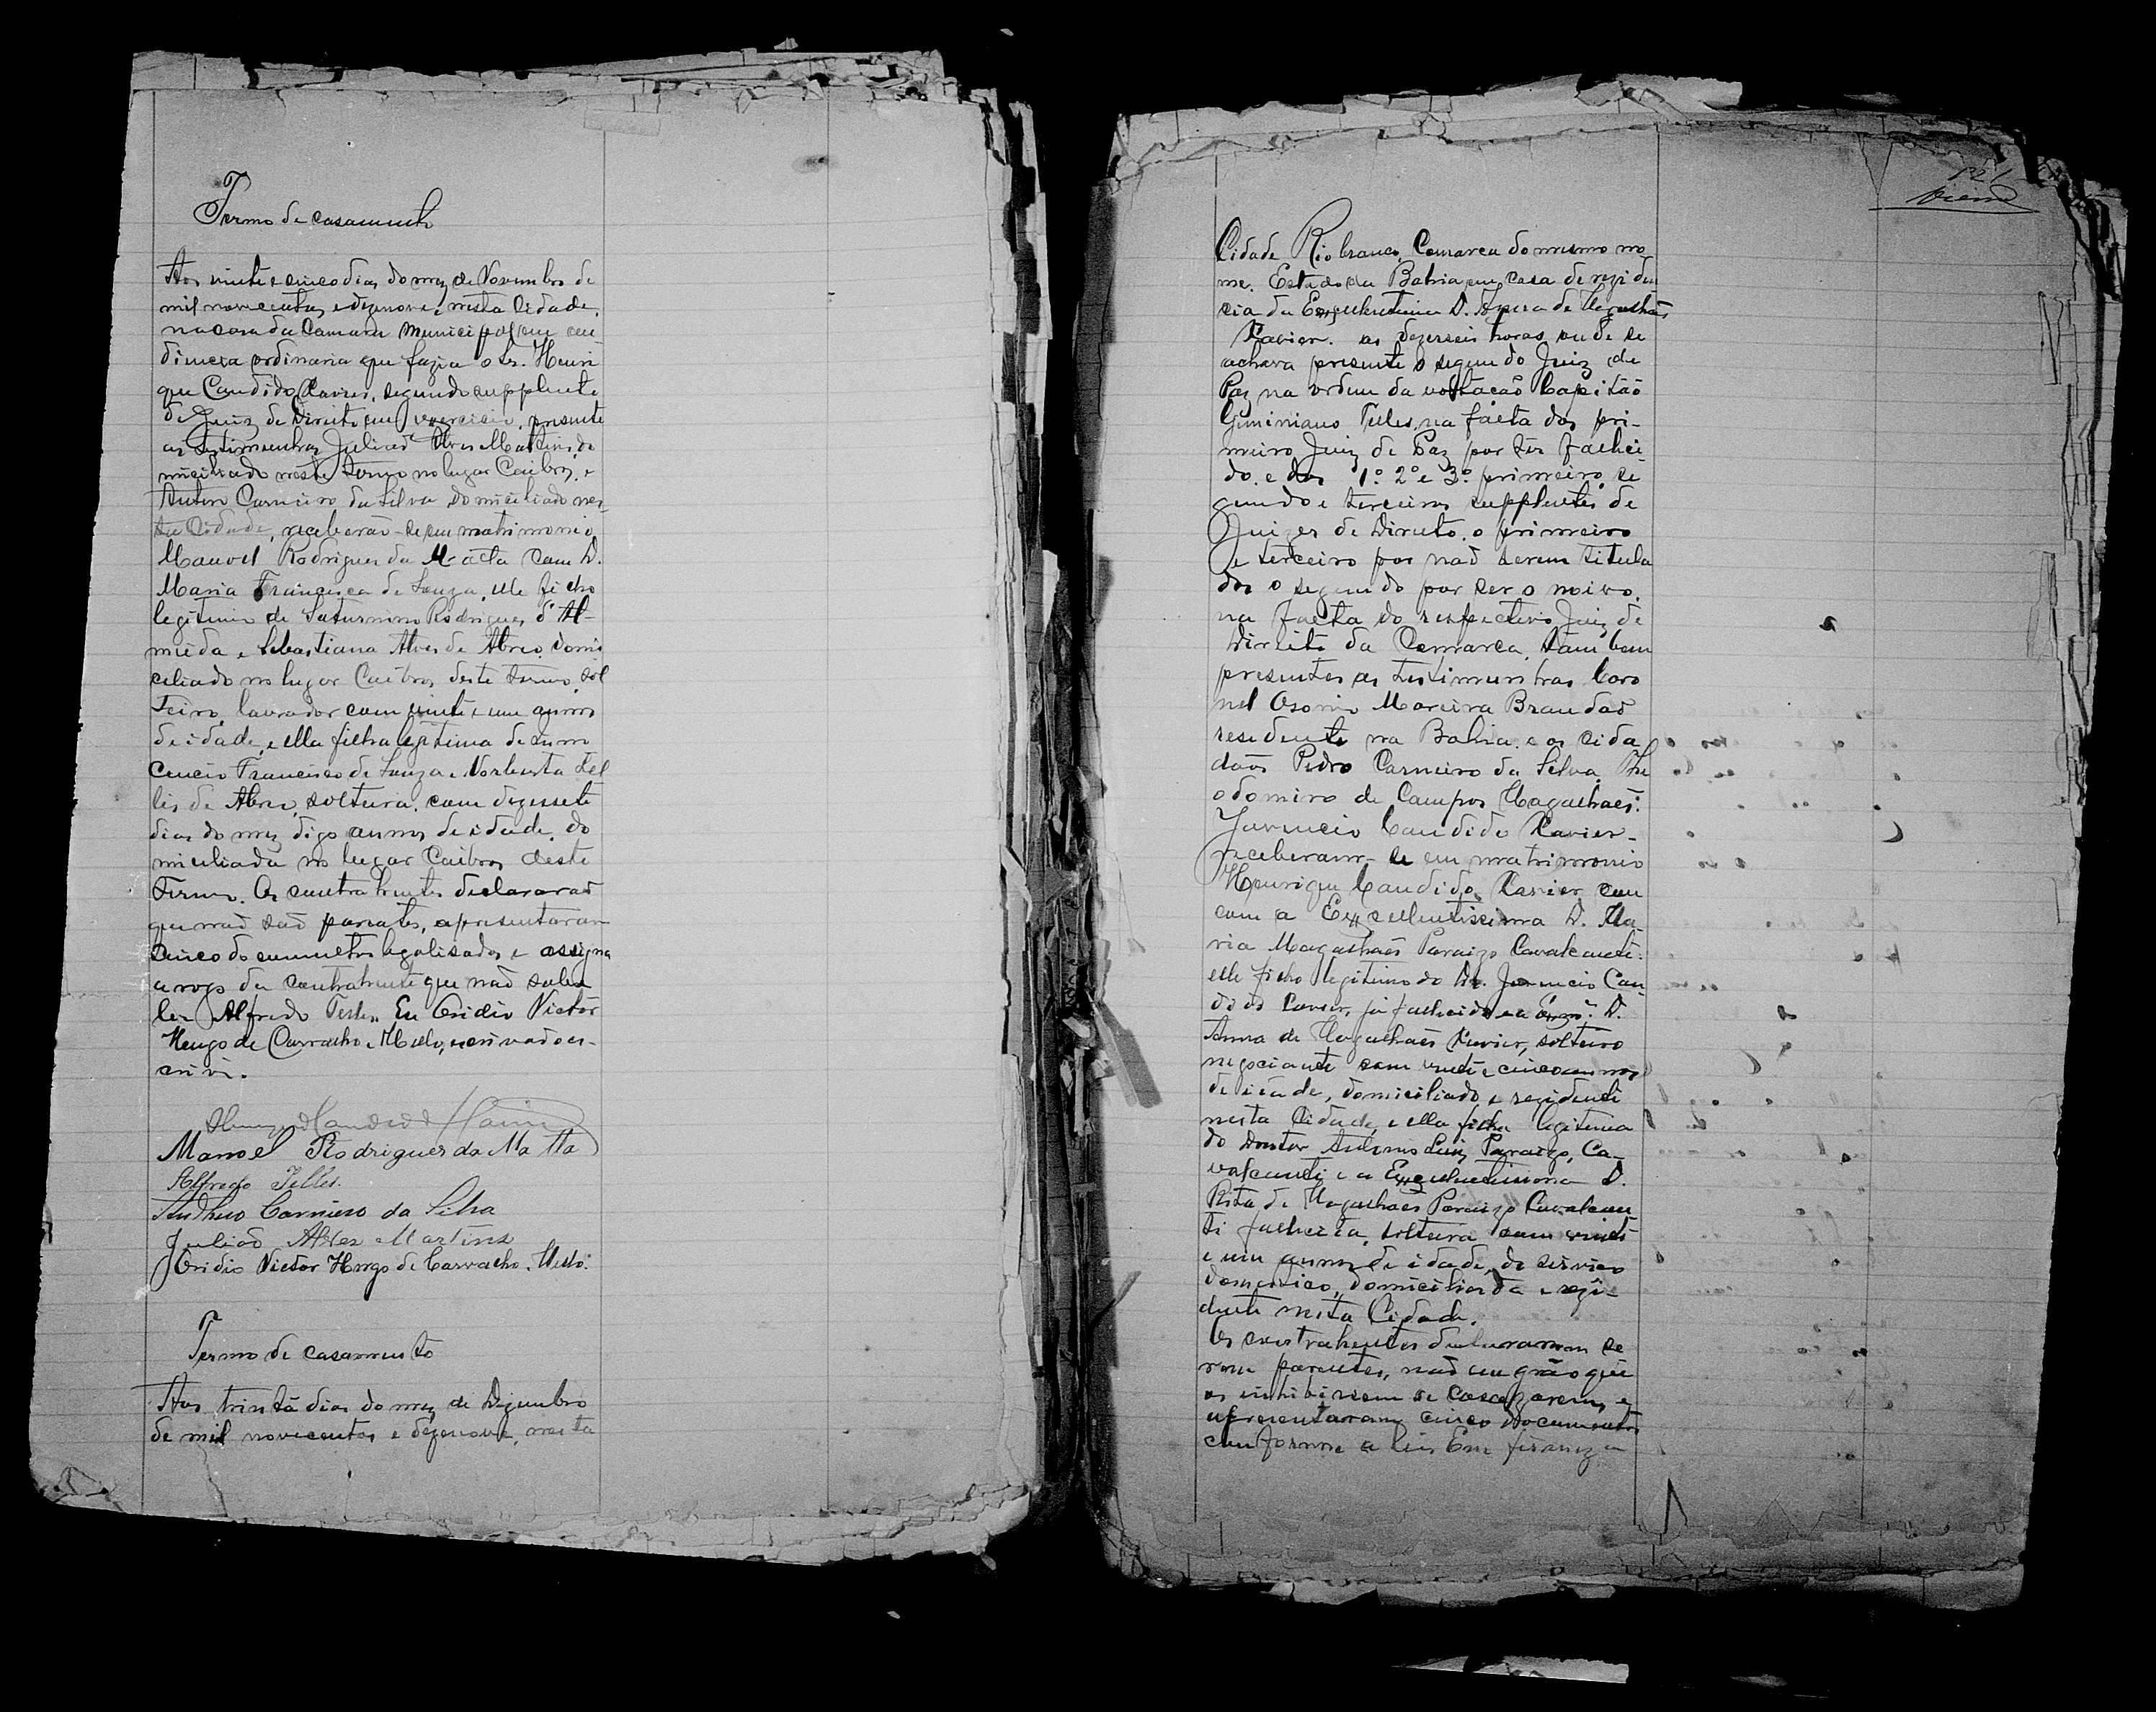 Termo de casamento
Aos vinte e cinco dias do mez de Novembro de
mil novecentos e dezenove, nesta Cidade,
na casa da Camara Municipal em au-
diencia ordinaria que fazia o Sr. Henri
que Candido Xavier, segundo supplente
de Juiz de Direito em exercicio, presente
as testimunhas Julião Alves Martins, do
miciliado neste termo no lugar Caibros, e
Antero Carneiro da Silva domiciliado nes-
ta Cidade, receberão-se em matrimonio
Manoel Rodrigues da Matta com D.
Maria Francisca de Souza, elle filho
legitimo de Saturnino Rodrigues d'Al-
meida e Sebastiana Alves de Abreo, domi
ciliado no lugar Caibros deste termo, sol
teiro, lavrador com vinte e um annos
de idade, e ella filha legitima de Inno
cencio Francisco de Souza e Norberta Tel
les de Abreo, solteira, com dezessete
dias do mez digo annos de idade, do
miciliada no lugar Caibros deste
Termo. Os contrahentes declararaõ
que naõ saõ parentes, apresentaram
cinco documentos legalisados e assigna
a rogo da contrahente que naõ sabe
ler Alfredo Telles. Eu Ovidio Victor
Hugo de Carvalho e Mello, escrivaõ es-
crivi.
Henrique Candido Xavier
Manoel Rodrigues da Matta
Alfredo Telles.
Anthero Carneiro da Silva
Julião Alves Martins
Ovidio Victor Hugo de Carvalho e Mello.
Termo de casamento
Aos trinta dias do mez de Dezembro
de mil novecentos e dezenove, nesta
121
Cidade Rio branco, Comarca do mesmo no
me, Estado da Bahia em casa de reziden
cia da Excellentissima D. Anna de Magalhães
Xavier. as dezesseis horas onde se
achava presente o segundo Juiz de
Paz na ordem da voltação Capitão
Giminiano Telles, na falta dos pri-
meiro Juiz de Paz por ter falleci
do e dos 1º 2º e 3º primeiro, se
gundo e terceiros supplentes de
Juizes de Direito, o primeiro
e terceiro por naõ serem titula
dos o segundo por ser o noivo,
na falta do respectivo Juiz de
Direito da Comarca. Tambem
presentes as testimunhas Coro
nel Osorio Moreira Brandaõ
residente na Bahia e os cida
daõs Pedro Carneiro da Silva, The
odomiro de Campos Magalhaẽs.
Juvencio Candido Xavier-
receberam-se em matrimonio
Henrique Candido Xavier com
com a Excellentissima D. Ma-
ria Magalhaẽs Paraizo Cavalcante.
elle filho legitimo do Dr. Juvencio Can-
dido Xavier, já fallecido e a Exmª. D.
Anna de Magalhaẽs Xavier, solteiro
negociante com vinte e cinco annos
de idade, domiciliado e rezidente
nesta Cidade, e ella filha legitima
do Doutor Antonio Luiz Paraizo, Ca-
valcanti e a Excellentissima D.
Rita de Magalhaes Paraizo Cavalcan
ti fallecida, solteira com vinte
e um annos de idade, de serviço
domestico, domiciliada e rezi-
dente nesta Cidade.
Os contrahentes declararam se
rem parentes, naõ em gráo que
os inhibissem se casazarem, e
apresentaram cinco documentos
conforme a lei. Em firmeza